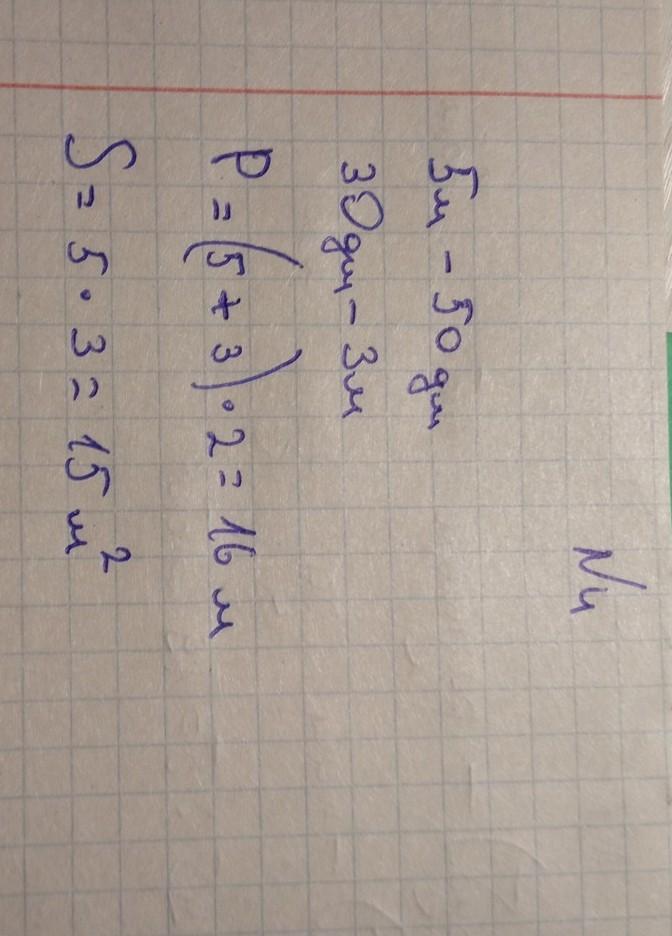 N4
5м - 50дм
30дм - 3м
P = (5 + 3) · 2 = 16 м
S = 5 · 3 = 15 м²